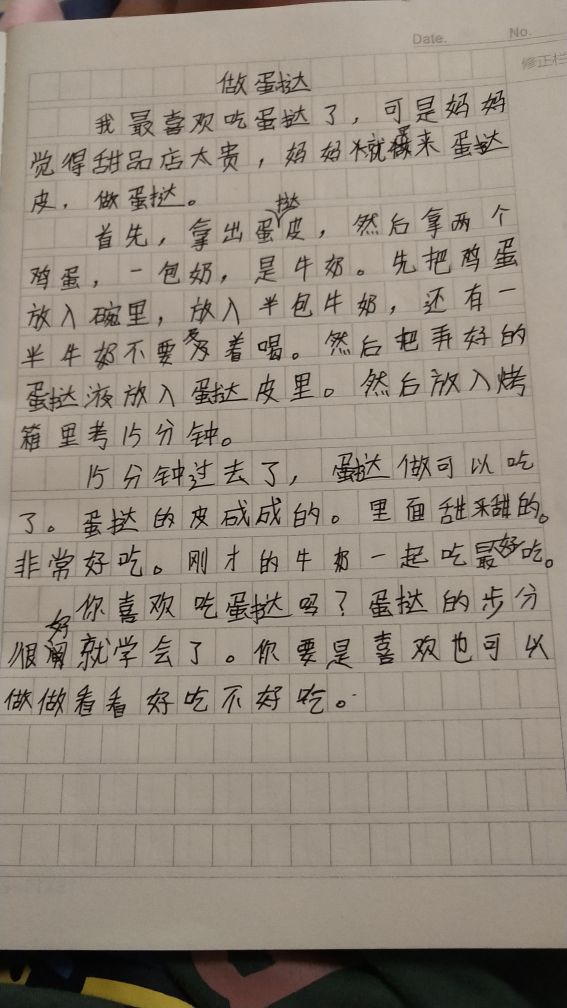 Date.
No.
修正栏
做蛋挞
我最喜欢吃蛋挞了，可是妈妈
觉得甜品店太贵，妈妈就来蛋挞
皮，做蛋挞。
首先，拿出蛋挞皮，然后拿两个
鸡蛋，一包奶，是牛奶。先把鸡蛋
放入碗里，放入半包牛奶，还有一
半牛奶不要急着喝。然后把弄好的
蛋挞液放入蛋挞皮里。然后放入烤
箱里考15分钟。
15分钟过去了，蛋挞做可以吃
了。蛋挞的皮咸咸的。里面甜甜的。
非常好吃。刚才的牛奶一起吃最好吃。
你喜欢吃蛋挞吗？蛋挞的步分
很好就学会了。你要是喜欢也可以
做做看看好吃不好吃。